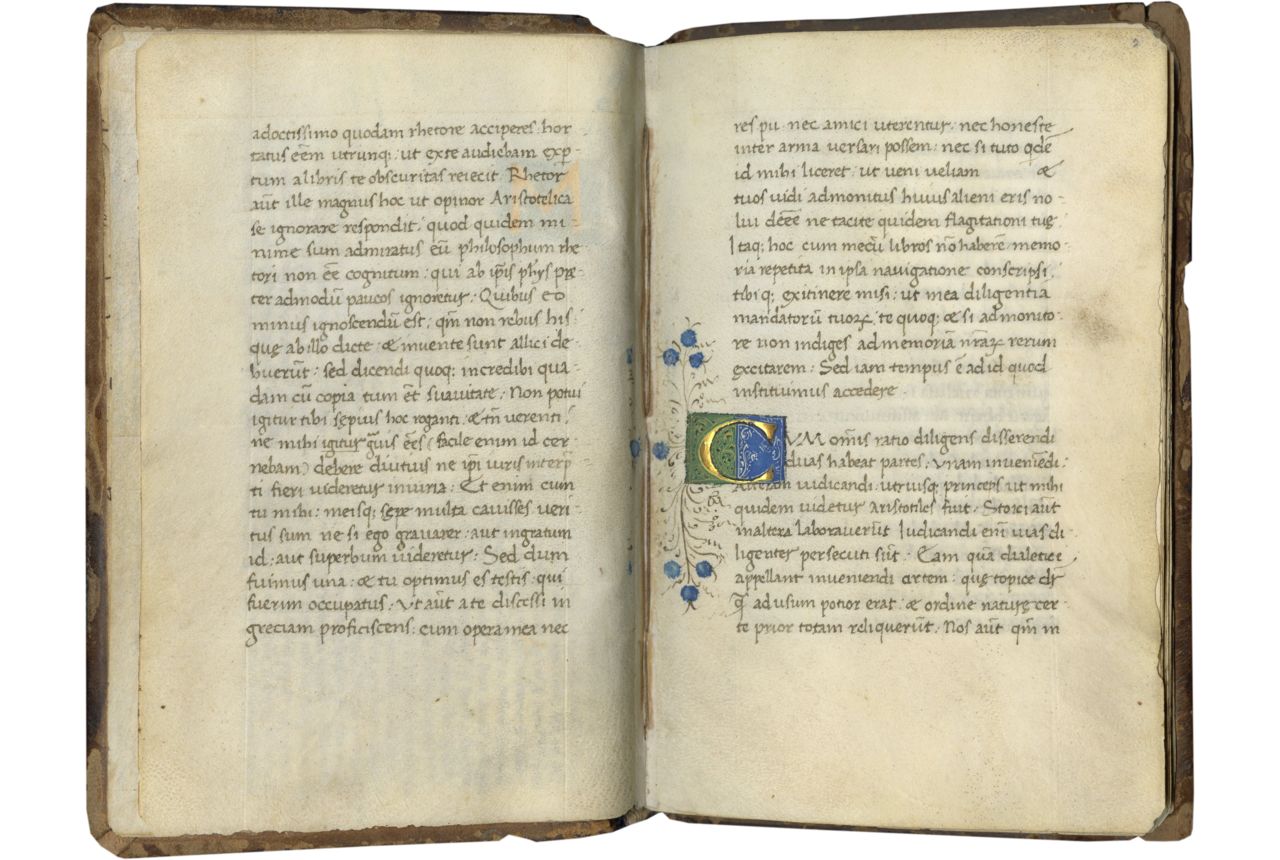 adoctissimo quodam rhetore acciperes: hor
tatus eēm utrunq;: ut exte audiebam exp̄
tum alibris te obscuritas reiecit. Rhetor
aūt ille magnus hoc ut opinor Aristotelica
se ignorare respondit: quod quidem mi-
nime sum admiratus eū philosophum rhe
tori non ēē cognitum: qui ab ip̄is phỹs pre
ter admodū paucos ignoretur. Quibus eo
minus ignoscendū est: qm̄ non rebus his
quę ab illo dictę & inventę sunt allici de-
buerūt: sed dicendi quoq; incredibi qua
dam cū copia tum ēt suavitate. Non potui
igitur tibi sępius hoc roganti: & tn̄ verenti:
ne mihi igitur gͣuis eēs (facile enim id cer
nebam) debere diutius ne ip̄i iuris interp̄
ti fieri uideretur iniuria. Et enim cum
tu mihi: meisq; sępe multa cavisses veri
tus sum ne si ego gravarer: aut ingratum
id: aut superbum uideretur. Sed dum
fuimus una: & tu optimus es testis: qui
fuerim occupatus. Ut aūt a te discessi in
greciam proficiscens: cum opera mea nec
res pu. nec amici uterentur: nec honeste
inter arma versari possem: nec si tuto qd̄e
id mihi liceret: ut veni veliam &
tuos uidi admonitus huius alieni eris no
lui dēēē ne tacite quidem flagitationi tuę
Itaq; hoc cum mecū libros nō haberē memo
ria repetita in ipsa navigatione conscripsi:
tibiq; exitinere misi: ut mea diligentia
mandatorū tuoꝝ te quoq; & si admonito
re non indiges ad memoriā nr̄aꝝ rerum
excitarem. Sed iam tempus ē ad id quod
instituimus accedere.
CVM omīs ratio diligens disserendi
duas habeat partes: vnam inveniēdi:
Alteram iudicandi: utriusq; princeps ut mihi
quidem uidetur Aristotiles fuit. Stoici aūt
inaltera laboraverūt Iudicandi enī uias di
ligenter persecuti sūt. Eam quā dialeticē
appellant inveniendi artem: quę topice dr̄
q̄ ad usum potior erat: & ordine naturę cer
te prior totam reliquerūt. Nos aūt qm̄ in